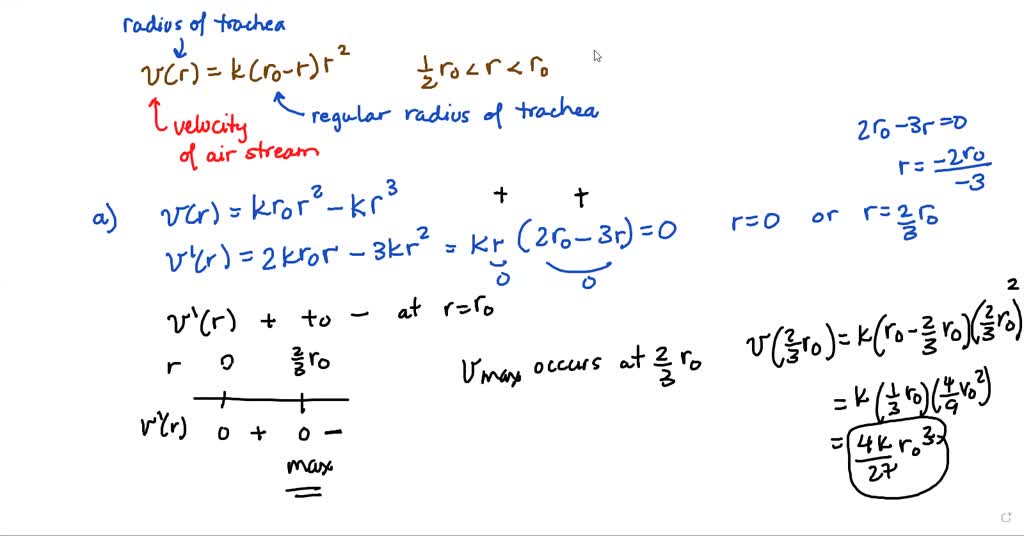 radius of trachea
v(r) = k(r₀-r)r² ½r₀ < r < r₀
regular radius of trachea
velocity
of air stream
2r₀ - 3r = 0
r = -2r₀/-3
a) v(r) = kr₀r² - kr³
+ +
v'(r) = 2kr₀r - 3kr² = kr (2r₀ - 3r) = 0 r = 0 or r = 2/3 r₀
0 0
v'(r) + to - at r = r₀
r 0 2/3 r₀
v'(r) 0 + 0 -
max
vmax occurs at 2/3 r₀
v(2/3 r₀) = k(r₀ - 2/3 r₀)(2/3 r₀)²
= k(1/3 r₀)(4/9 r₀²)
= 4k/27 r₀³